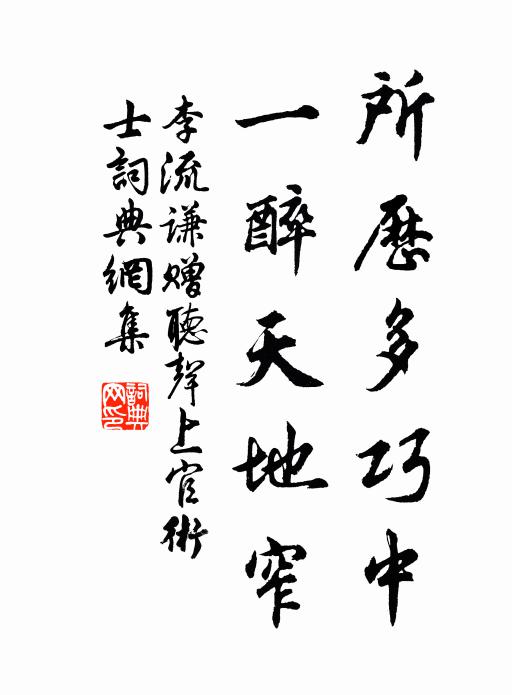 所歷多巧中
一醉天地窄
李流谦赠聽聲上官術
士詞典網集
詞典網印